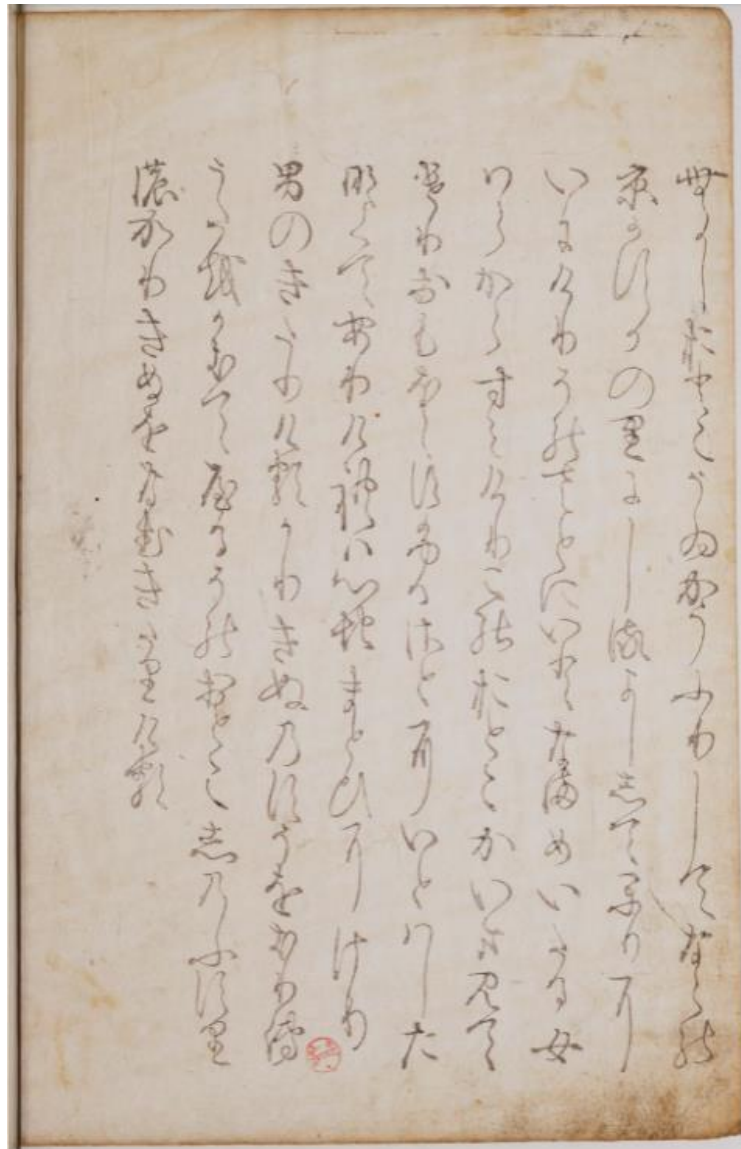 むかしおとこうゐかうふりしてならの
京かすかの里にしるよししてかりに
いにけりそのさとにいとなまめいたる女
はらからすみけりこのおとこかいま見て
けりおもほえすふるさとにいとはした
なくてありけれは心地まとひにけり
男のきたりけるかりきぬのすそをきりて
うたをかきてやるそのおとこしのふすり
のかりきぬをなむきたりける